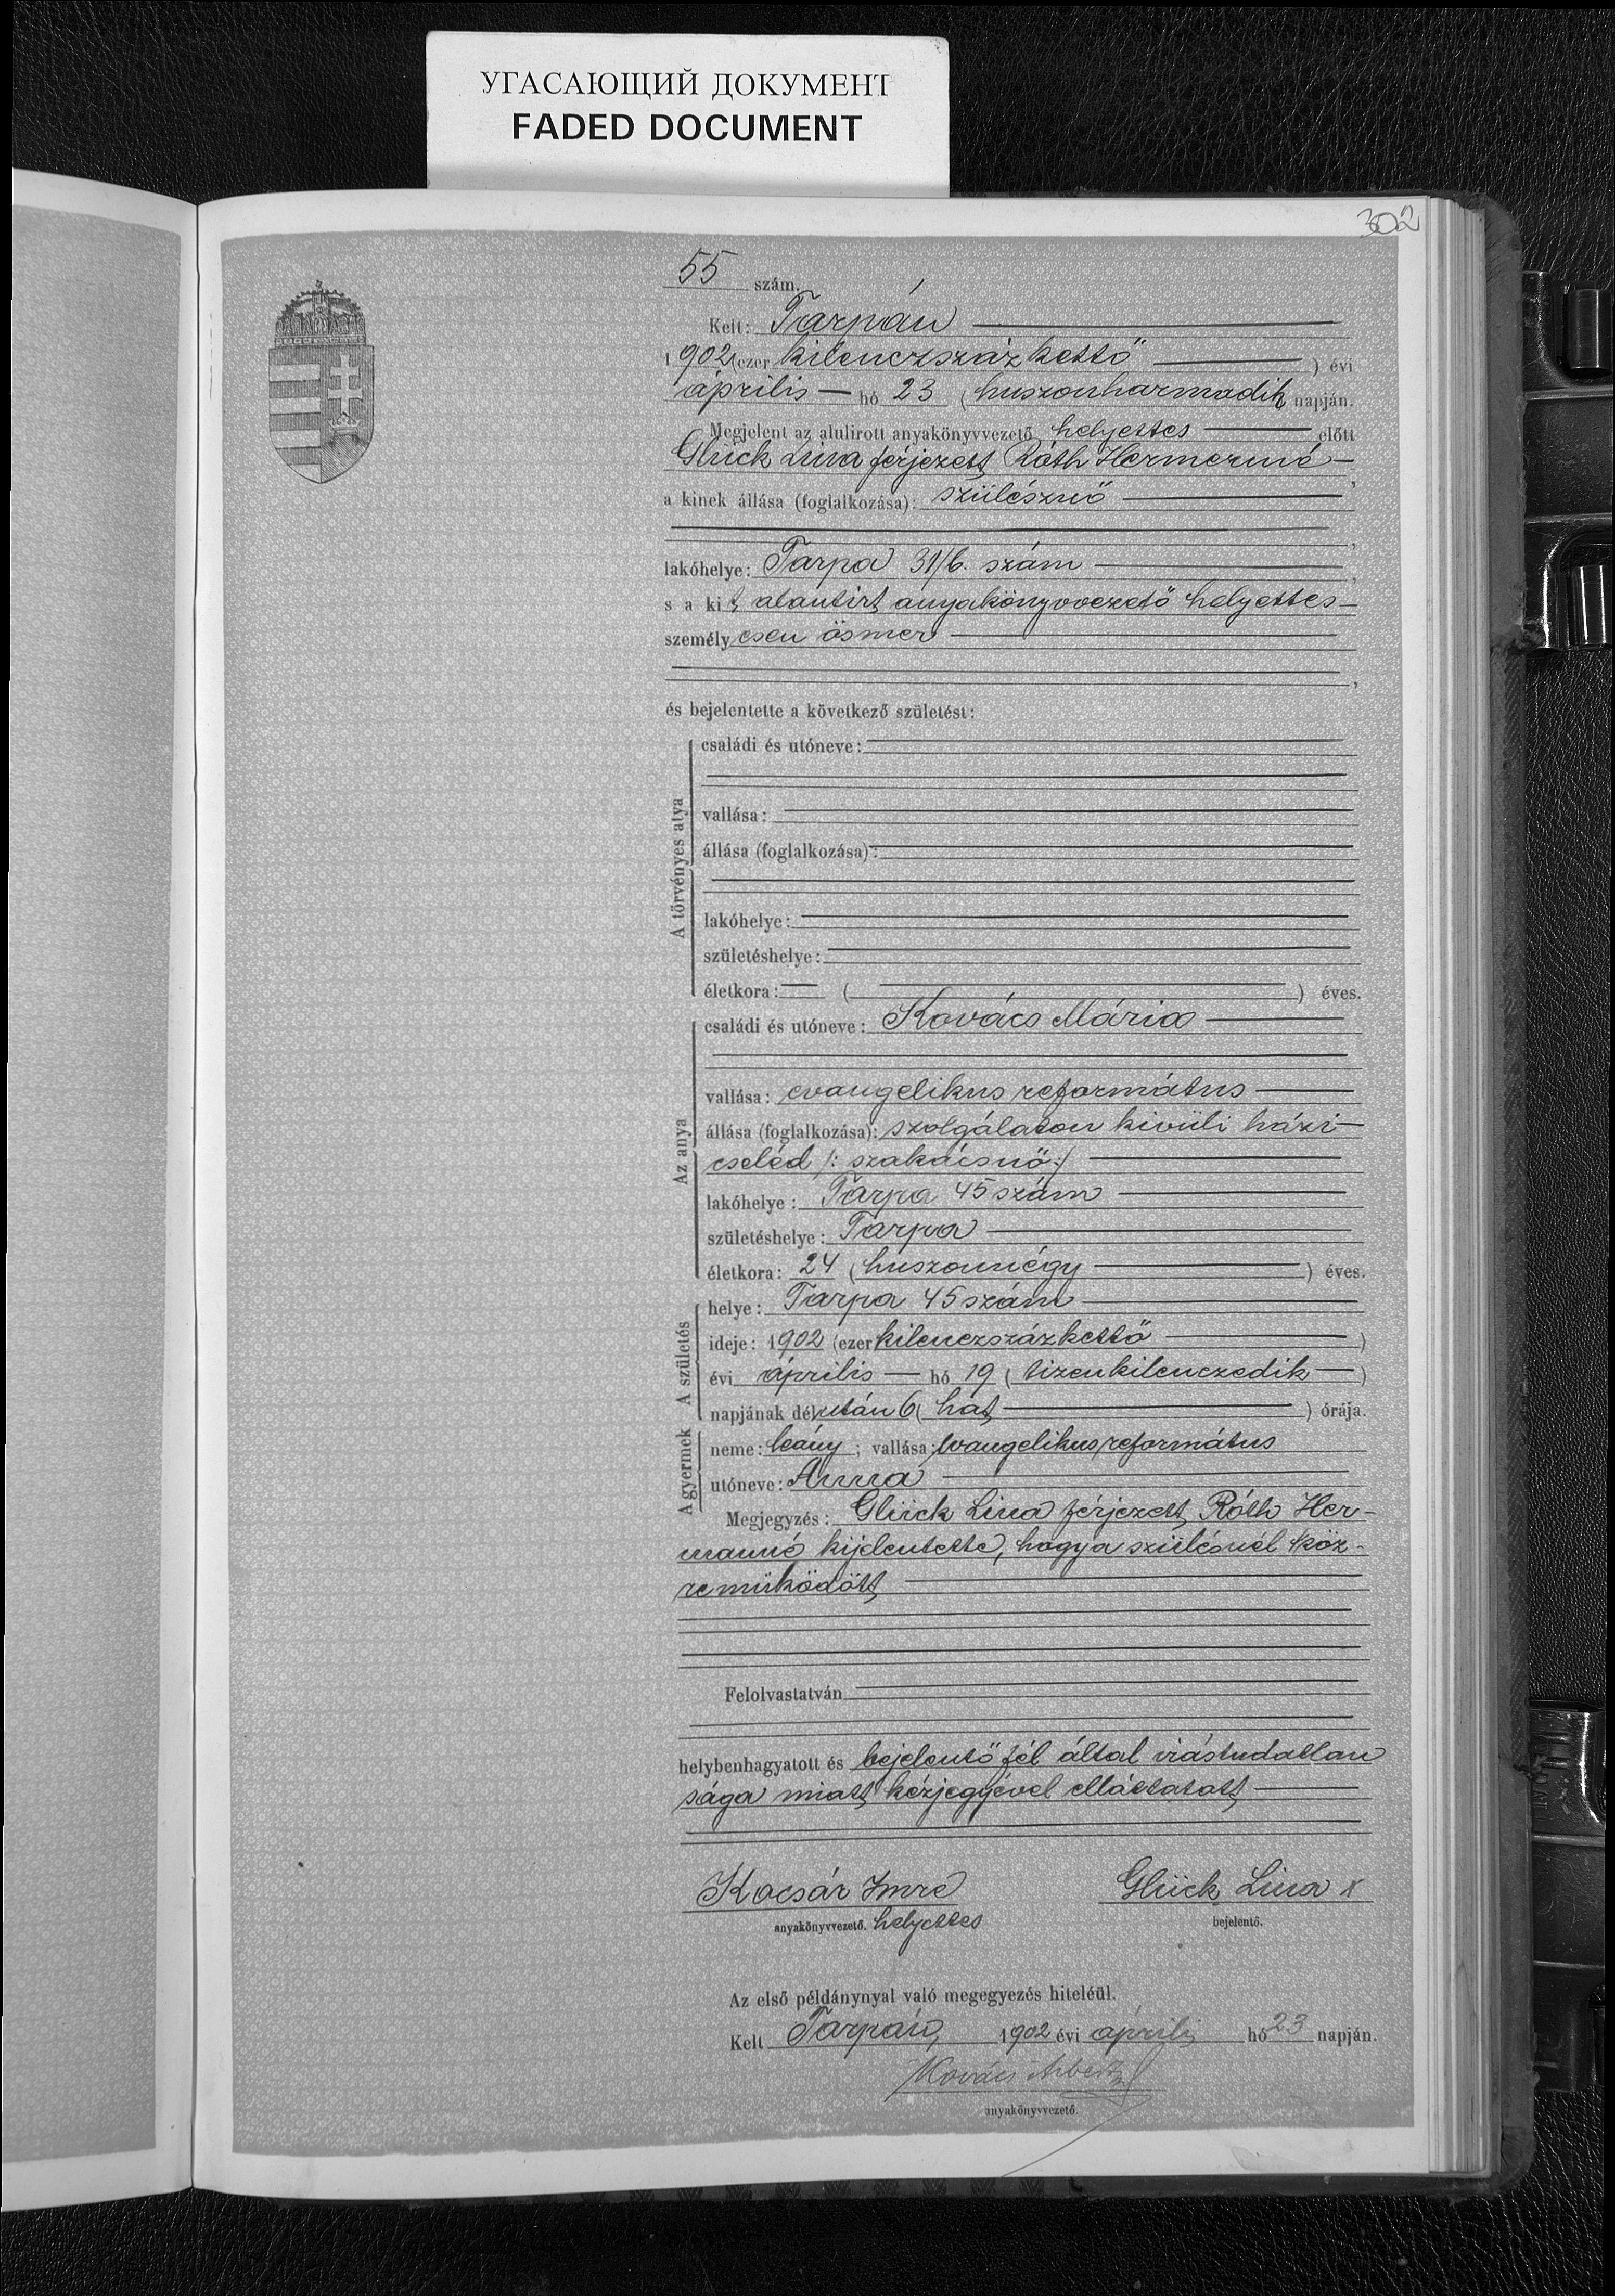 УГАСАЮЩИЙ ДОКУМЕНТ
FADED DOCUMENT
302
55 szám.
Kelt: Tarpán
1902 (ezer kilenczszázkettő) évi
április hó 23 (huszonharmadik napján.
Megjelent az alulirott anyakönyvvezető helyettes előtt
Glück Lina férjezett Róth Hermanné,
a kinek állása (foglalkozása): szülésznő
,
lakóhelye: Tarpa 31/b. szám,
s a kit alantirt anyakönyvvezető helyettes
személyesen ösmer
,
és bejelentette a következő születést:
A törvényes atya
családi és utóneve:
vallása:
állása (foglalkozása):
lakóhelye:
születéshelye:
életkora: ( ) éves.
Az anya
családi és utóneve: Kovács Mária
vallása: evangelikus református
állása (foglalkozása): szolgálaton kivüli házi
cseléd /: szakácsnő :/
lakóhelye: Tarpa 45 szám
születéshelye: Tarpa
életkora: 24 (huszonnégy) éves.
A születés
helye: Tarpa 45 szám
ideje: 1902 (ezer kilenczszázkettő)
évi április hó 19 (tizenkilenczedik)
napjának délután 6 (hat) órája.
A gyermek
neme: leány; vallása: evangelikus református
utóneve: Anna
Megjegyzés: Glück Lina férjezett Róth Her-
manné kijelentette, hogy a szülésnél köz-
remüködött
Felolvastatván
helybenhagyatott és bejelentő fél által irástudatlan
sága miatt kézjegyével elláttatott
Kocsár Imre Glück Lina x
anyakönyvvezető. helyettes bejelentő.
Az első példánynyal való megegyezés hiteléül.
Kelt Tarpán, 1902 évi április hó 23 napján.
Kovács
anyakönyvvezető.